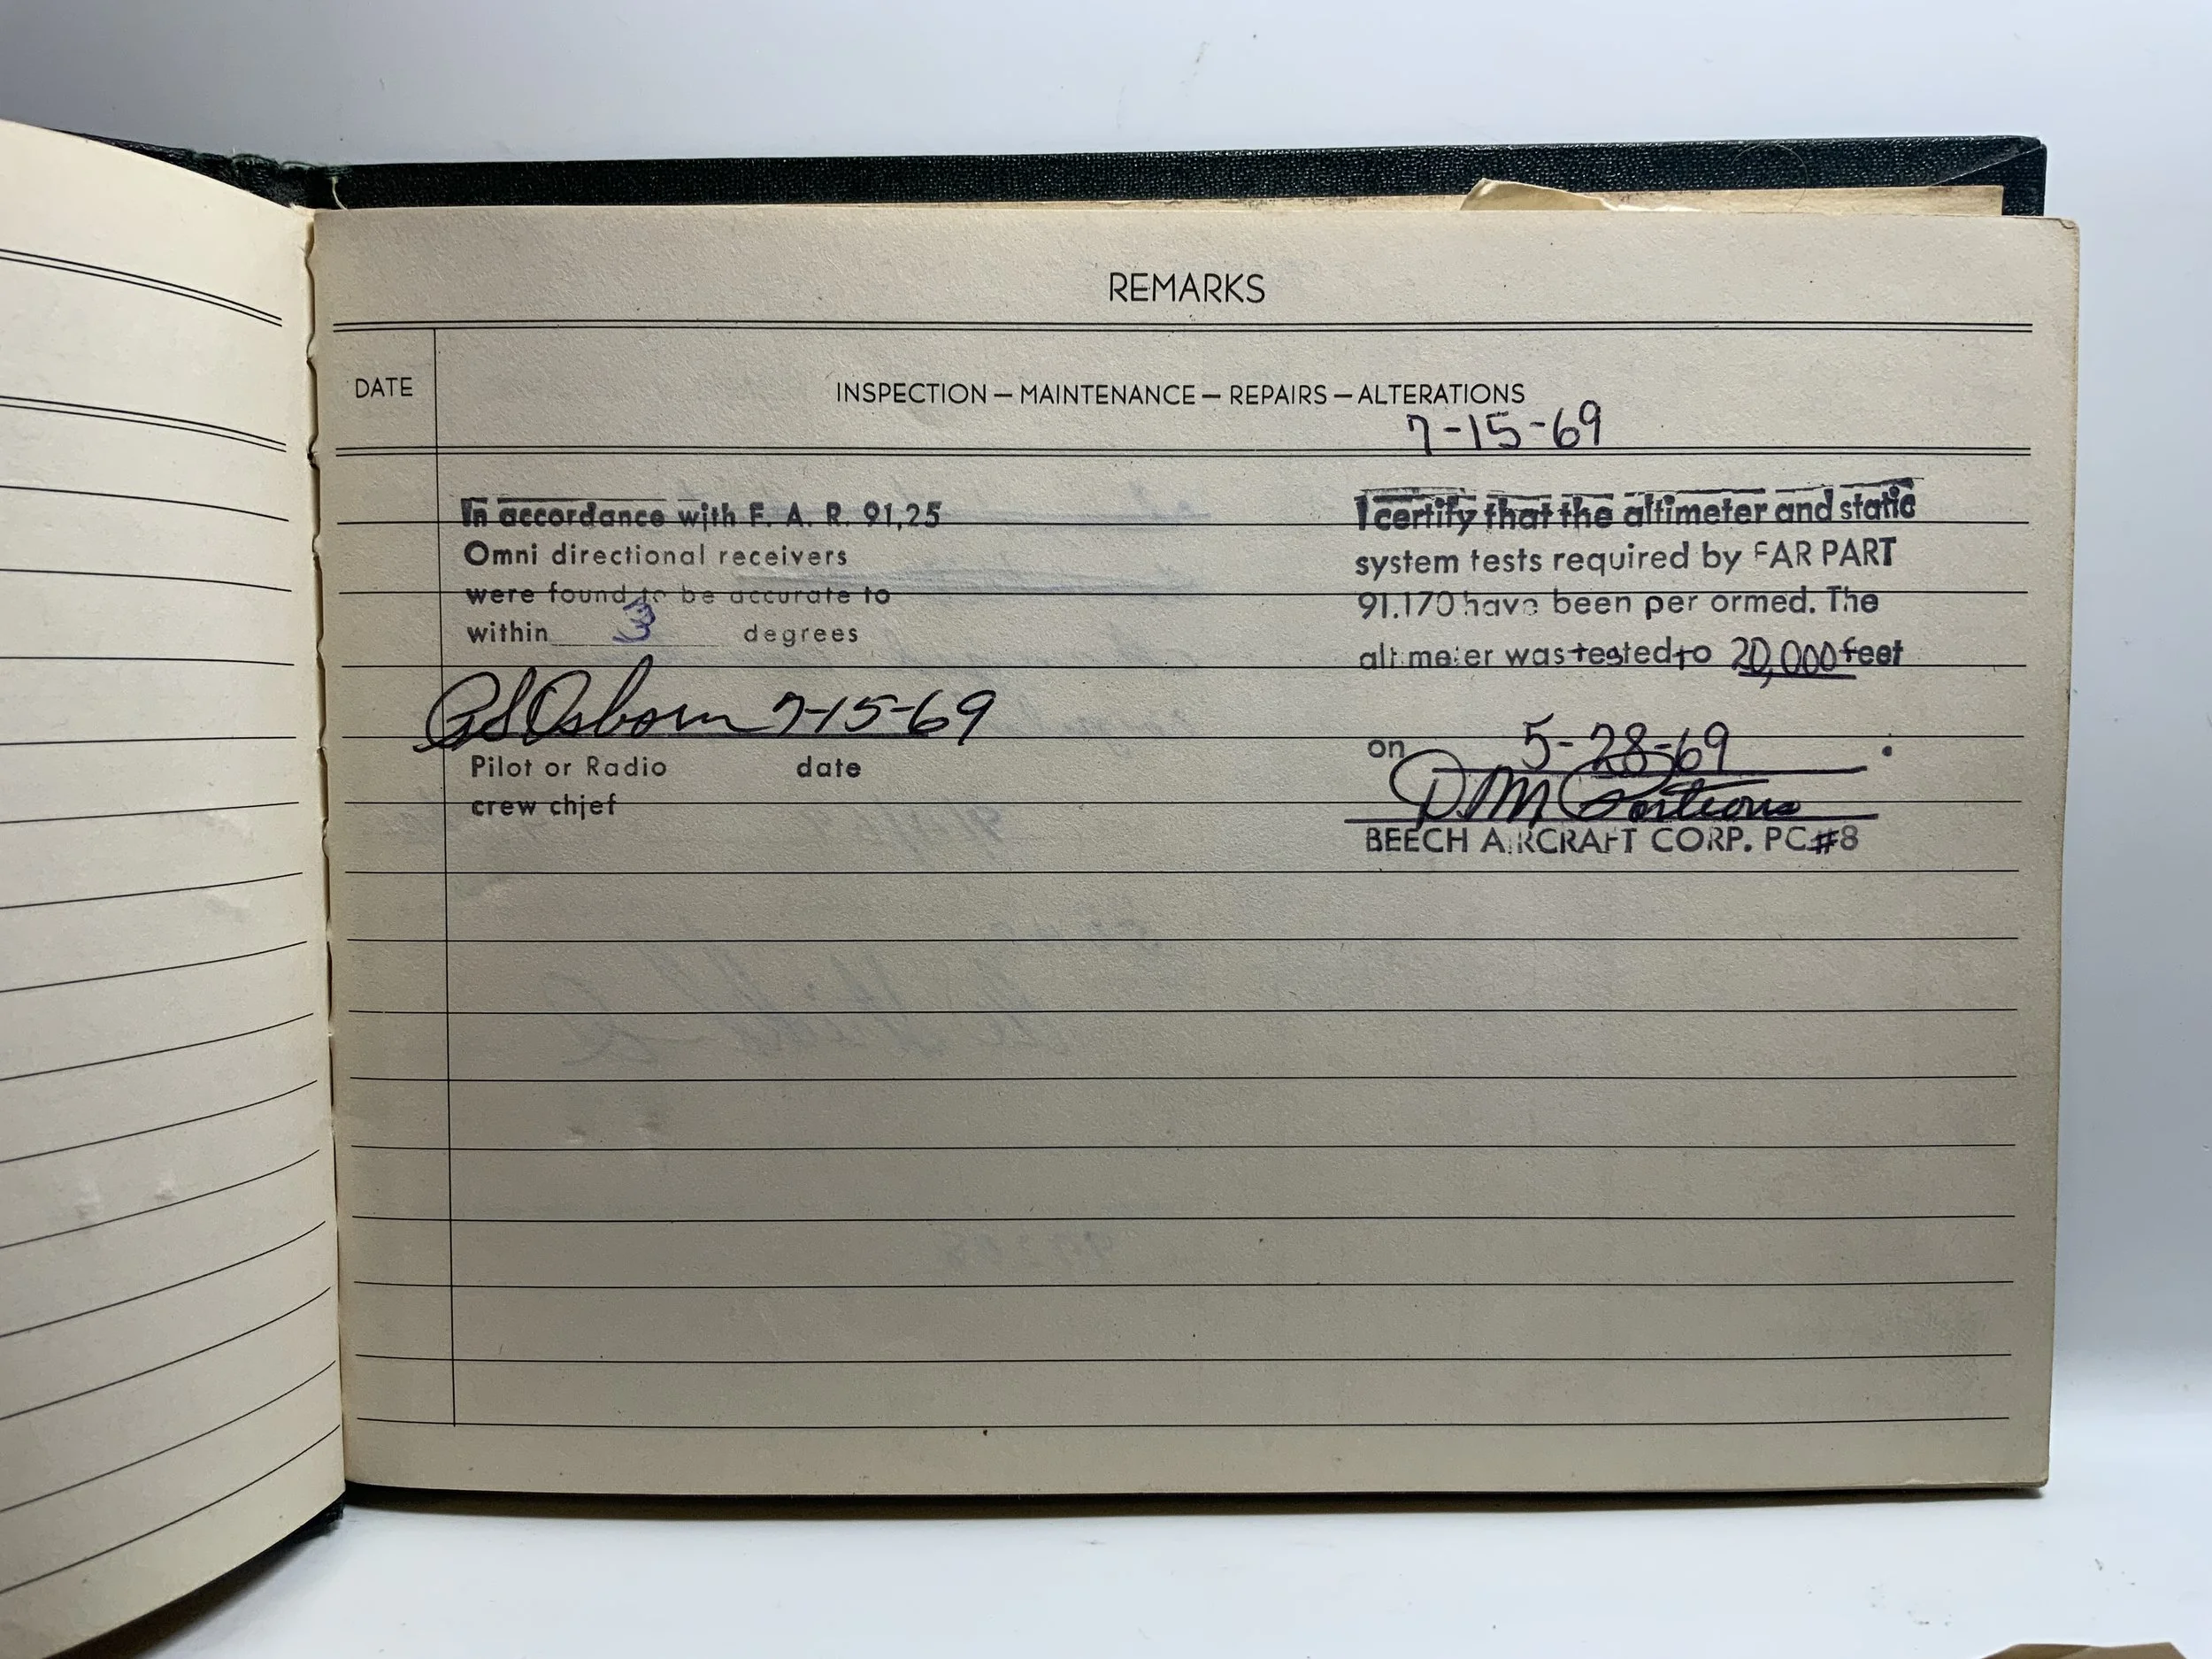 REMARKS
DATE
INSPECTION — MAINTENANCE — REPAIRS — ALTERATIONS
7-15-69
In accordance with F. A. R. 91.25
Omni directional receivers
were found to be accurate to
within 3 degrees
Osborn 7-15-69
Pilot or Radio date
crew chief
I certify that the altimeter and static
system tests required by FAR PART
91.170 have been per ormed. The
altimeter was tested to 20,000 feet
on 5-28-69 .
D.M.
BEECH AIRCRAFT CORP. PC#8